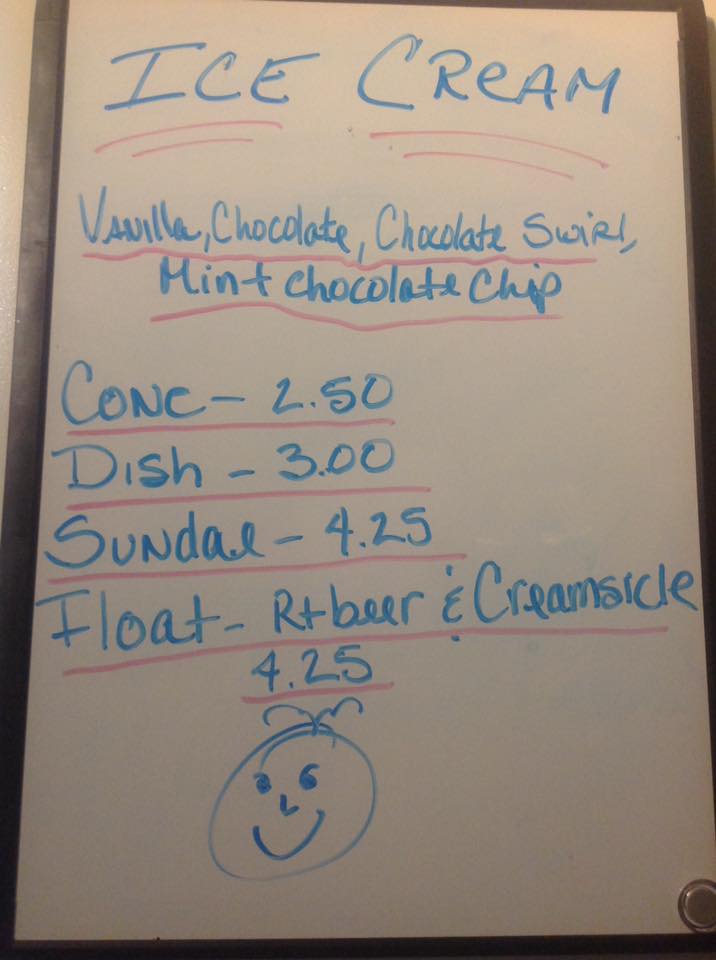 ICE CREAM
Vanilla, Chocolate, Chocolate Swirl,
Mint chocolate Chip
Cone - 2.50
Dish - 3.00
Sundae - 4.25
Float - Rt beer & Creamsicle
4.25